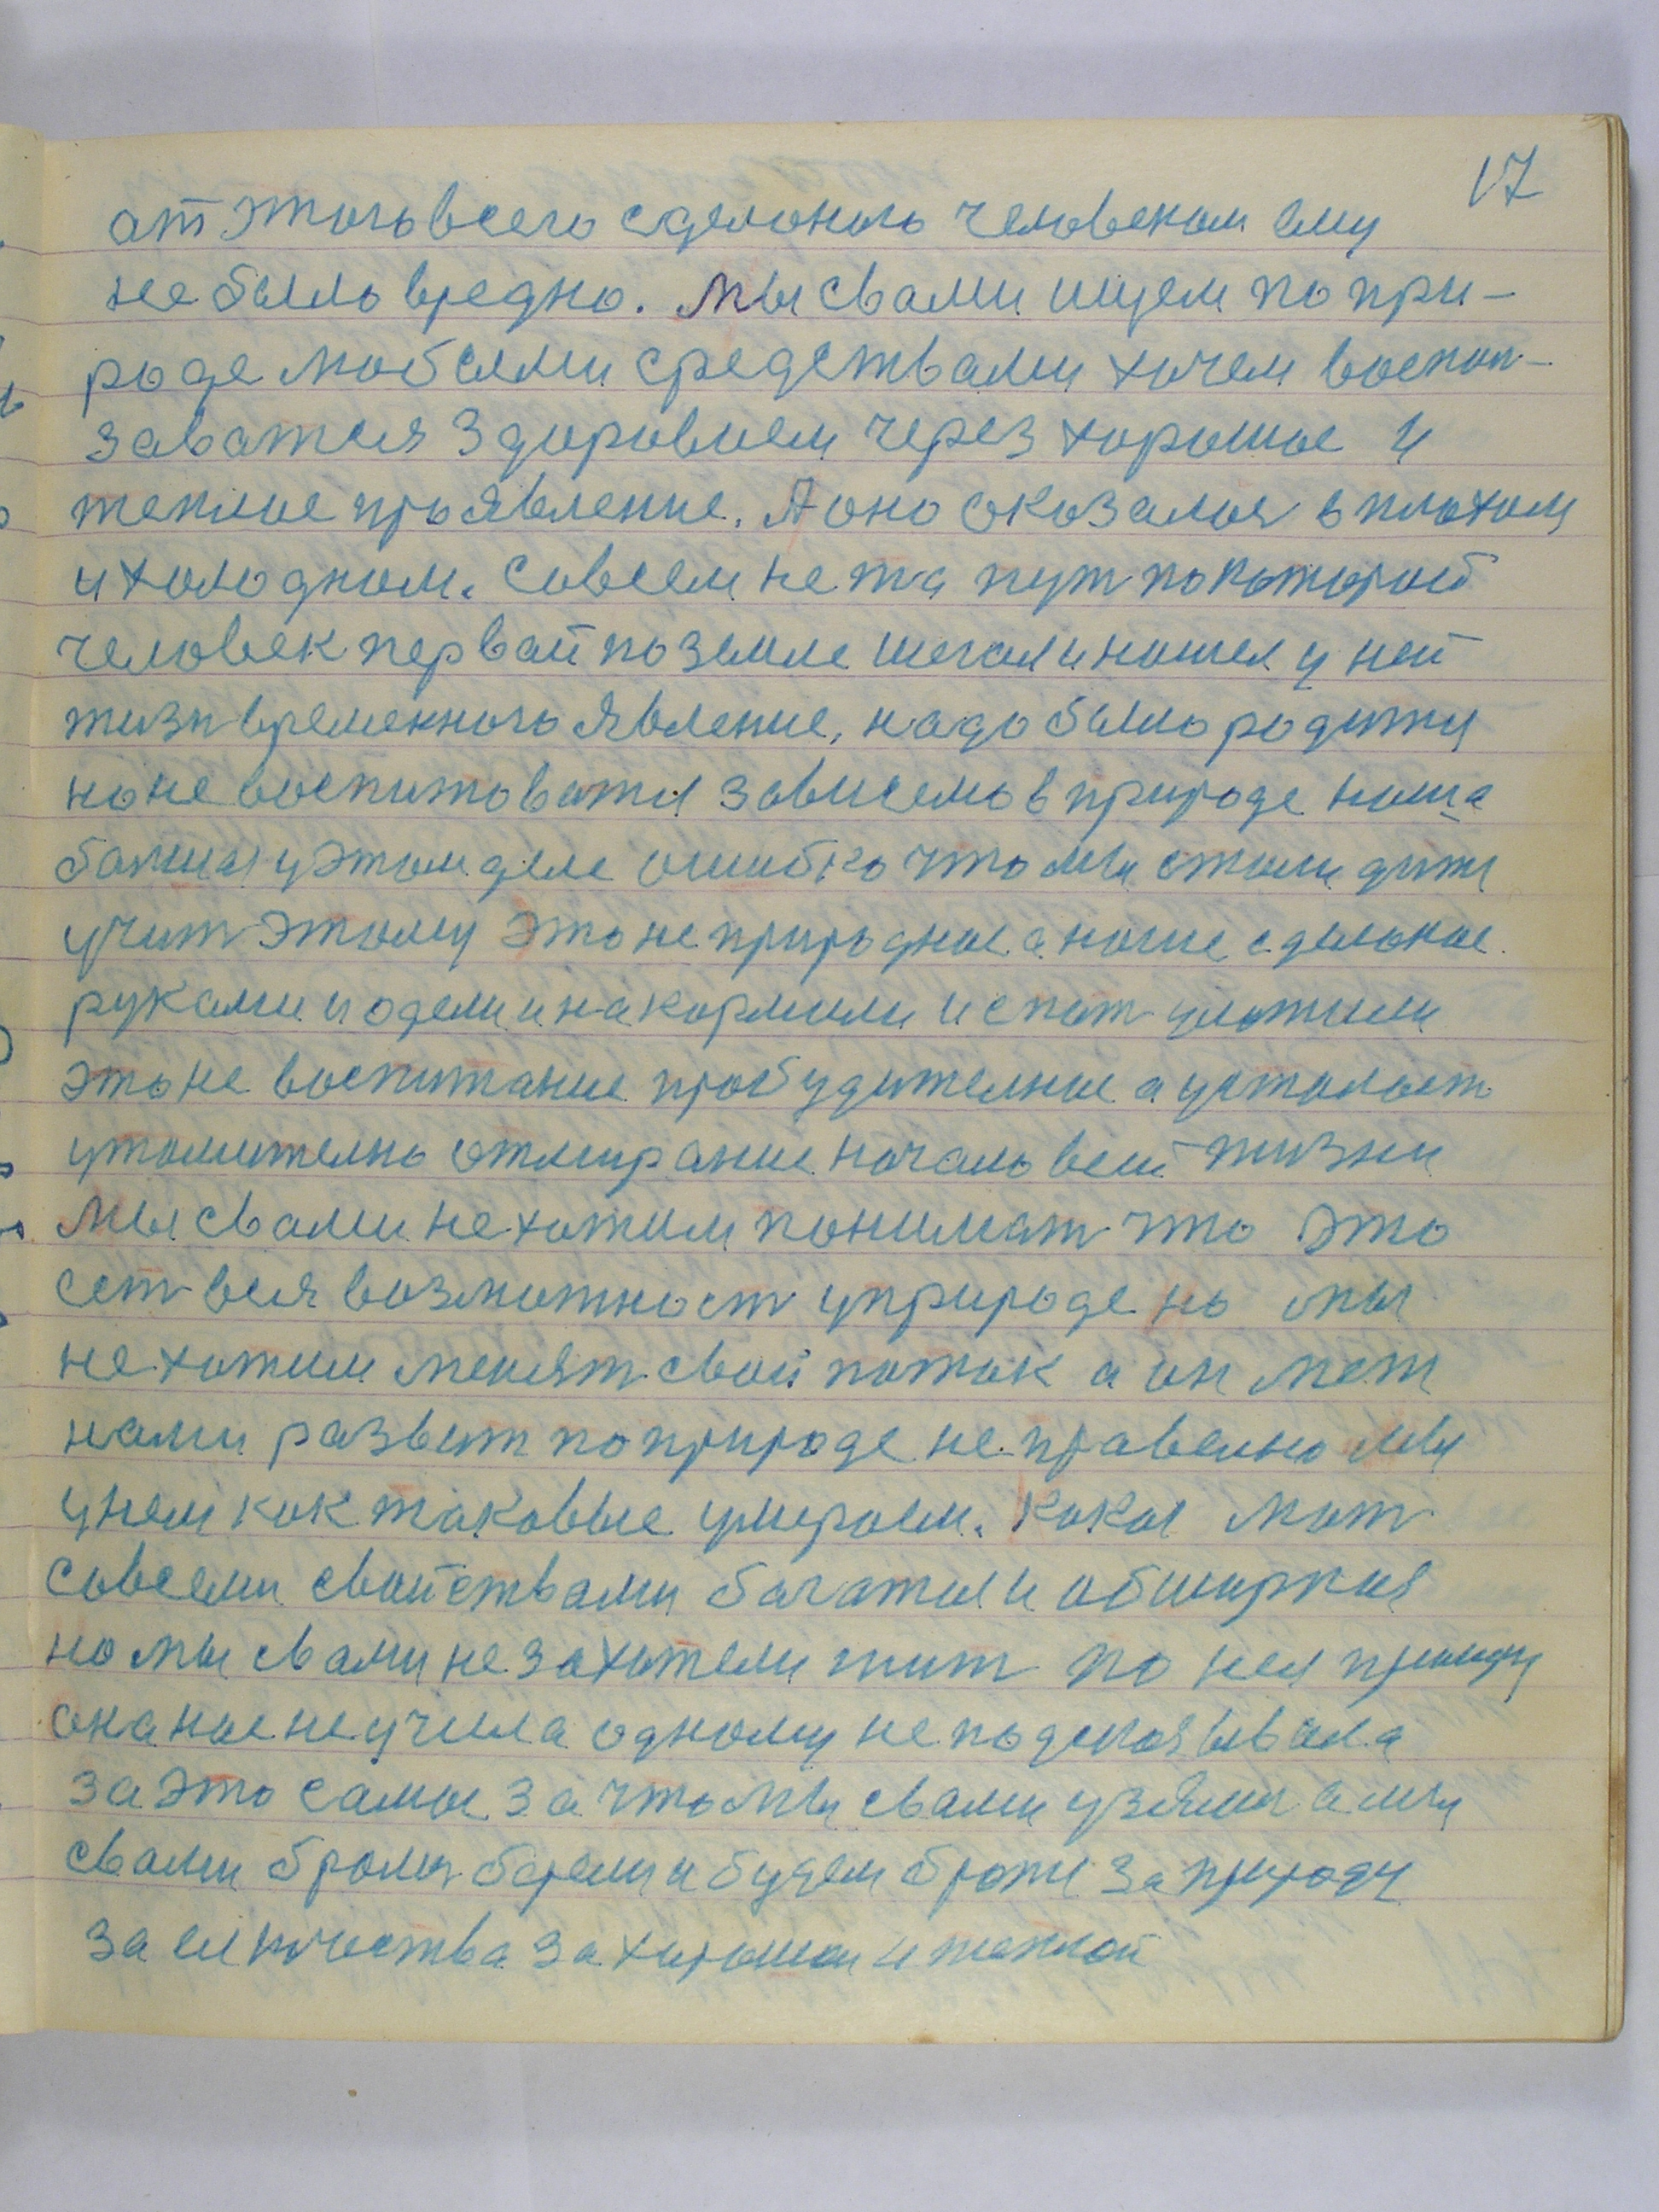 17
от этого всего сделоного человеком ему
не было вредно. Мы свами ищем по при-
роде любсеми средствами хочем воспол-
заватся здоровием через хорошое и
теплое проявление. А оно оказалоя в плохом
и холодном. Совсем не та пут по которой
человек первай по земле шегал и ношел у ней
жизн временного явление, надо было родится
но не воспитоватся зависемо в природе ноша
болшая у этом деле ошибко что мы стали дити
учит этому это не природное а ноше сделоное
руками и одели и накормили и спат уложили
это не воспитание пробудителное а усталост
утомително отмирание начало всей жизни
Мы свами не хотим понимат что это
ест вся возможност у природе но мы
не хотим менят свой поток а он меж
нами развит по природе не правелно мы
у нем как таковые умираем. Какая мат
совсеми свойствами богатая и обширная
но мы свами не захотели жит по нея
она нас не учила одному не подсказывала
за это самое за что мы свами узялис а мы
свами бролис берем и будем брати за природу
за ея качества за хорошой и теплой